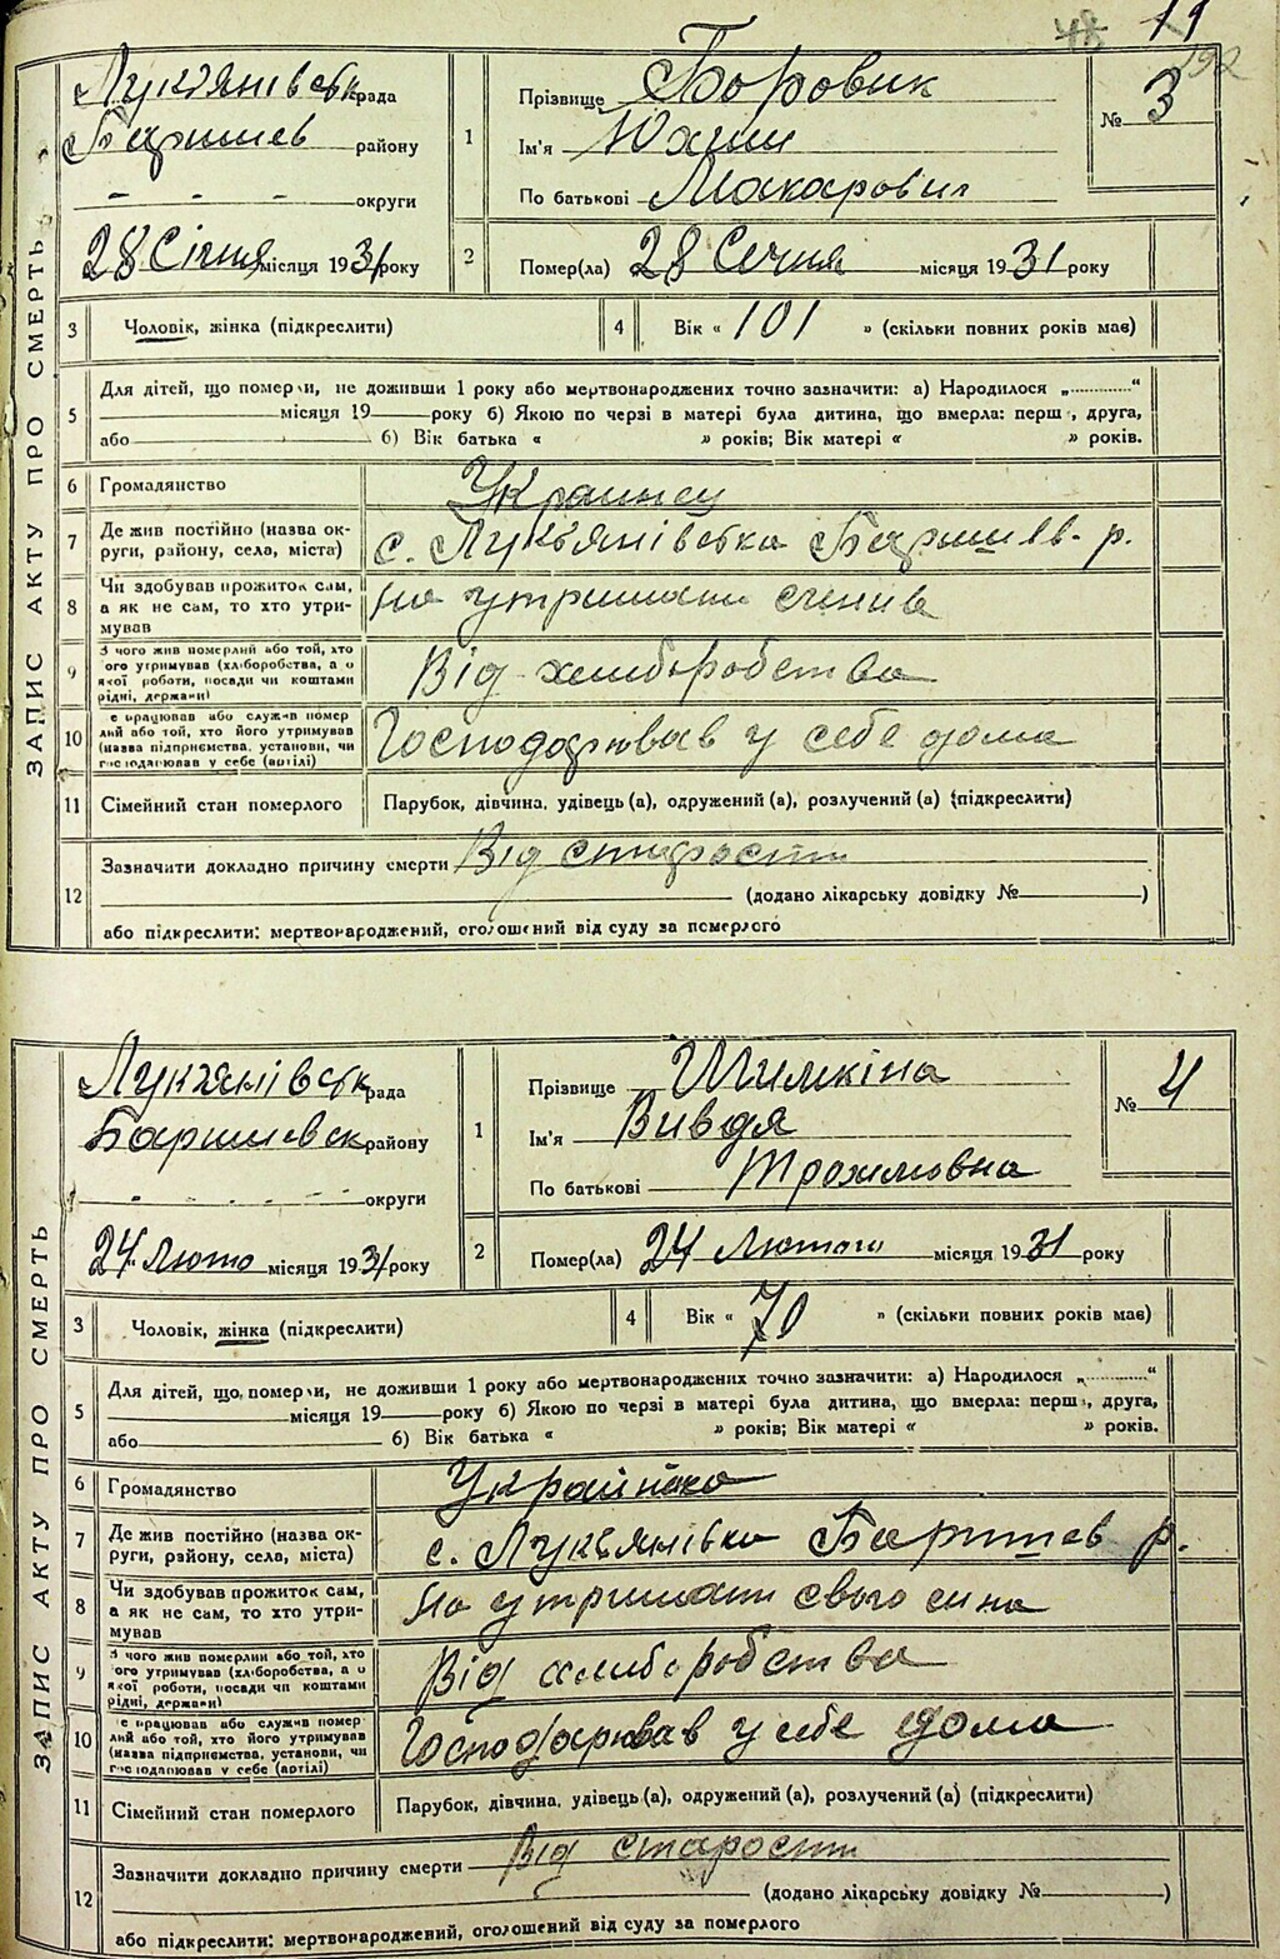 48 11
192
ЗАПИС АКТУ ПРО СМЕРТЬ
Лук'янівськ рада
Баришев району
- - - округи
28 Січня місяця 1931 року
1
Прізвище Боровик
Ім'я Юхим
По батькові Макарович
№ 3
2 Помер(ла) 28 Сечня місяця 1931 року
3 Чоловік, жінка (підкреслити)
4 Вік « 101 » (скільки повних років має)
5
Для дітей, що померли, не доживши 1 року або мертвонароджених точно зазначити: а) Народилося „ “
місяця 19 року б) Якою по черзі в матері була дитина, що вмерла: перш, друга,
або б) Вік батька « » років; Вік матері « » років.
6 Громадянство Украинец
7 Де жив постійно (назва ок-
руги, району, села, міста) с. Лук'янівська Баришев. р.
8 Чи здобував прожиток сам,
а як не сам, то хто утри-
мував На утримани синив
9 З чого жив померлий або той, хто
ого утримував (хліборобства, а о
якої роботи, посади чи коштами
рідні, держави) Від хлиборобства
10 е працював або служив помер
лий або той, хто його утримував
(назва підприємства, установи, чи
господарював у себе (артілі) Господарював у себе дома
11 Сімейний стан померлого Парубок, дівчина, удівець(а), одружений(а), розлучений(а) (підкреслити)
12 Зазначити докладно причину смерти Від старости
(додано лікарську довідку № )
або підкреслити: мертвонароджений, оголошений від суду за померлого
ЗАПИС АКТУ ПРО СМЕРТЬ
Лук'янівськ рада
Баришевск району
- - - округи
24 Люто місяця 1931 року
1
Прізвище Шимкіна
Ім'я Вивдя
По батькові Трохимовна
№ 4
2 Помер(ла) 24 Лютого місяця 1931 року
3 Чоловік, жінка (підкреслити)
4 Вік « 70 » (скільки повних років має)
5
Для дітей, що померли, не доживши 1 року або мертвонароджених точно зазначити: а) Народилося „ “
місяця 19 року б) Якою по черзі в матері була дитина, що вмерла: перш, друга,
або б) Вік батька « » років; Вік матері « » років.
6 Громадянство Українка
7 Де жив постійно (назва ок-
руги, району, села, міста) с. Лук'янівка Баришев р.
8 Чи здобував прожиток сам,
а як не сам, то хто утри-
мував На утримати свого сина
9 З чого жив померлий або той, хто
ого утримував (хліборобства, а о
якої роботи, посади чи коштами
рідні, держави) Від хлиборобства
10 е працював або служив помер
лий або той, хто його утримував
(назва підприємства, установи, чи
господарював у себе (артілі) Господарював у себе дома
11 Сімейний стан померлого Парубок, дівчина, удівець(а), одружений(а), розлучений(а) (підкреслити)
12 Зазначити докладно причину смерти Від старости
(додано лікарську довідку № )
або підкреслити: мертвонароджений, оголошений від суду за померлого